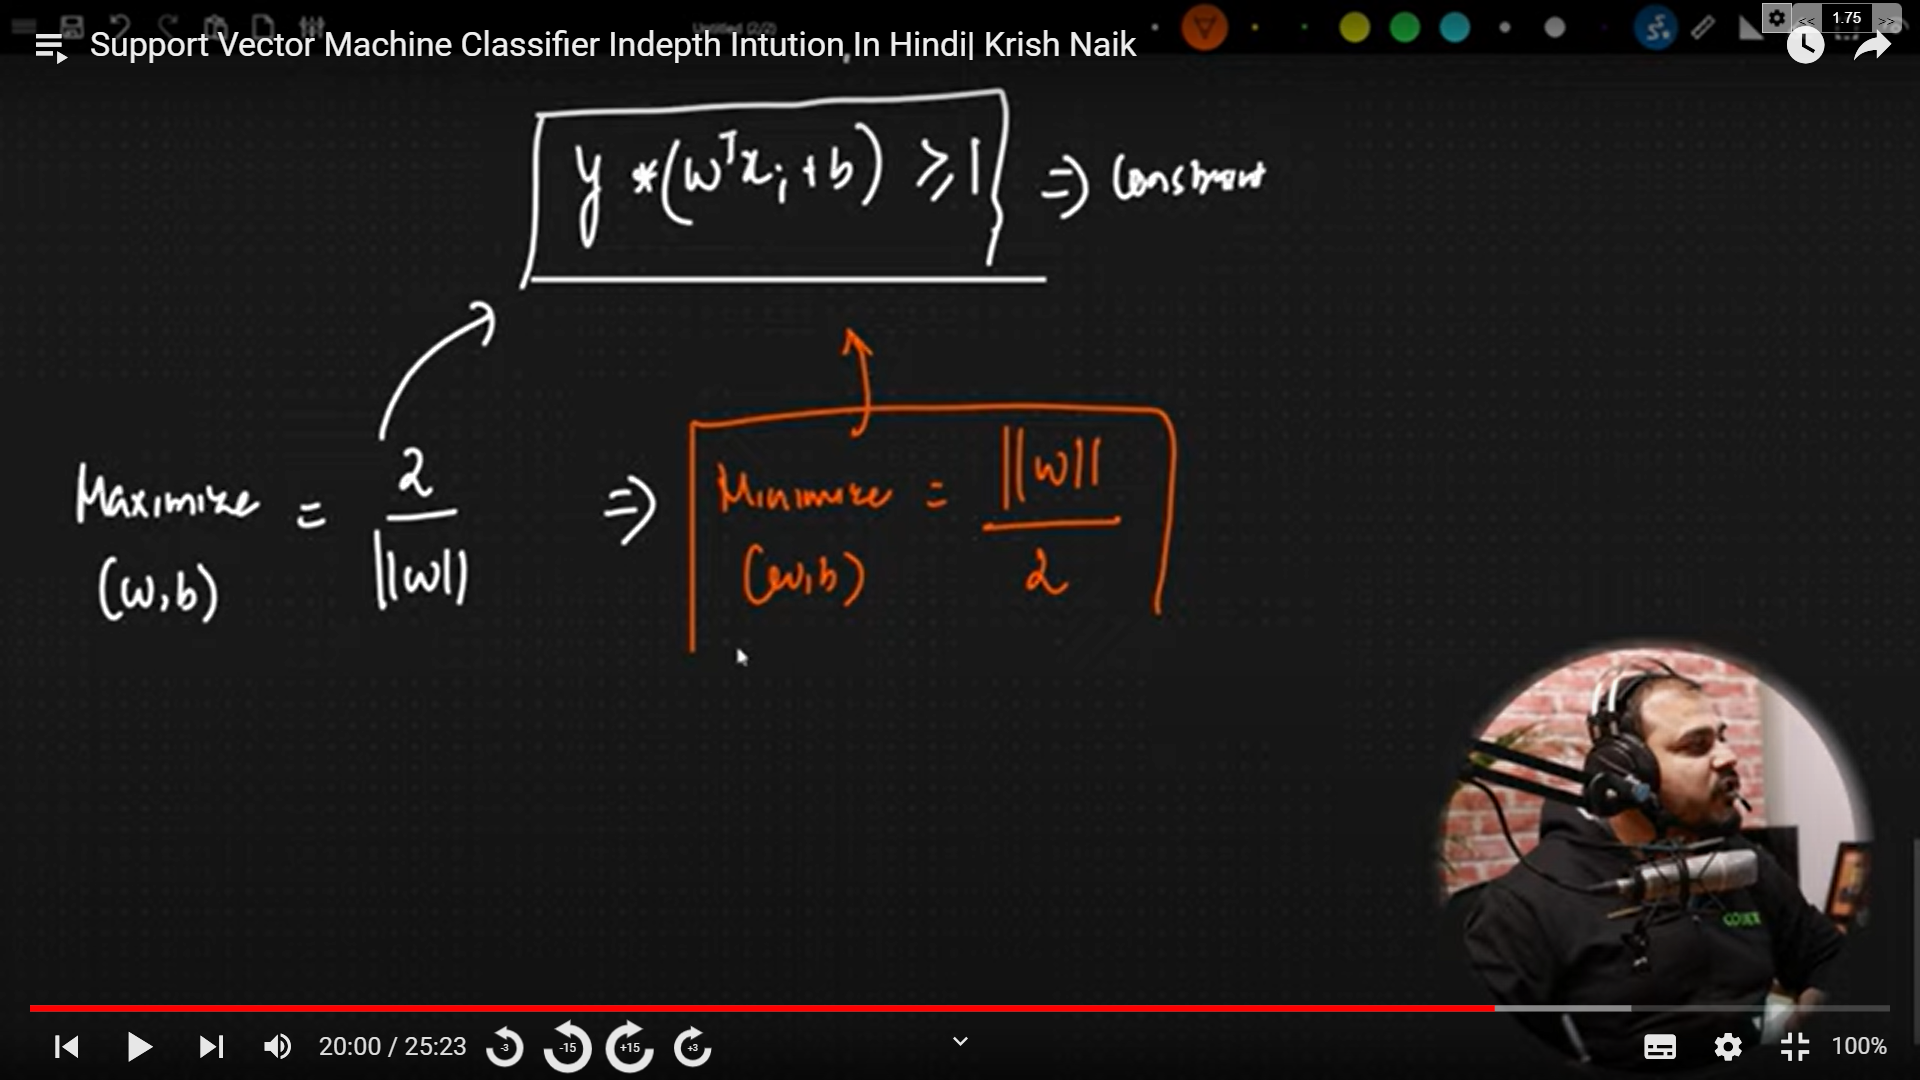 Untitled (2/2)
<< 1.75 >>
Support Vector Machine Classifier Indepth Intution In Hindi| Krish Naik
y * (wᵀxᵢ + b) ⩾ 1 ⇒ Constraint
Maximize = 2 / ||w|| ⇒ Minimize = ||w|| / 2
(w, b) (w, b)
20:00 / 25:23 -3 -15 +15 +3 100%